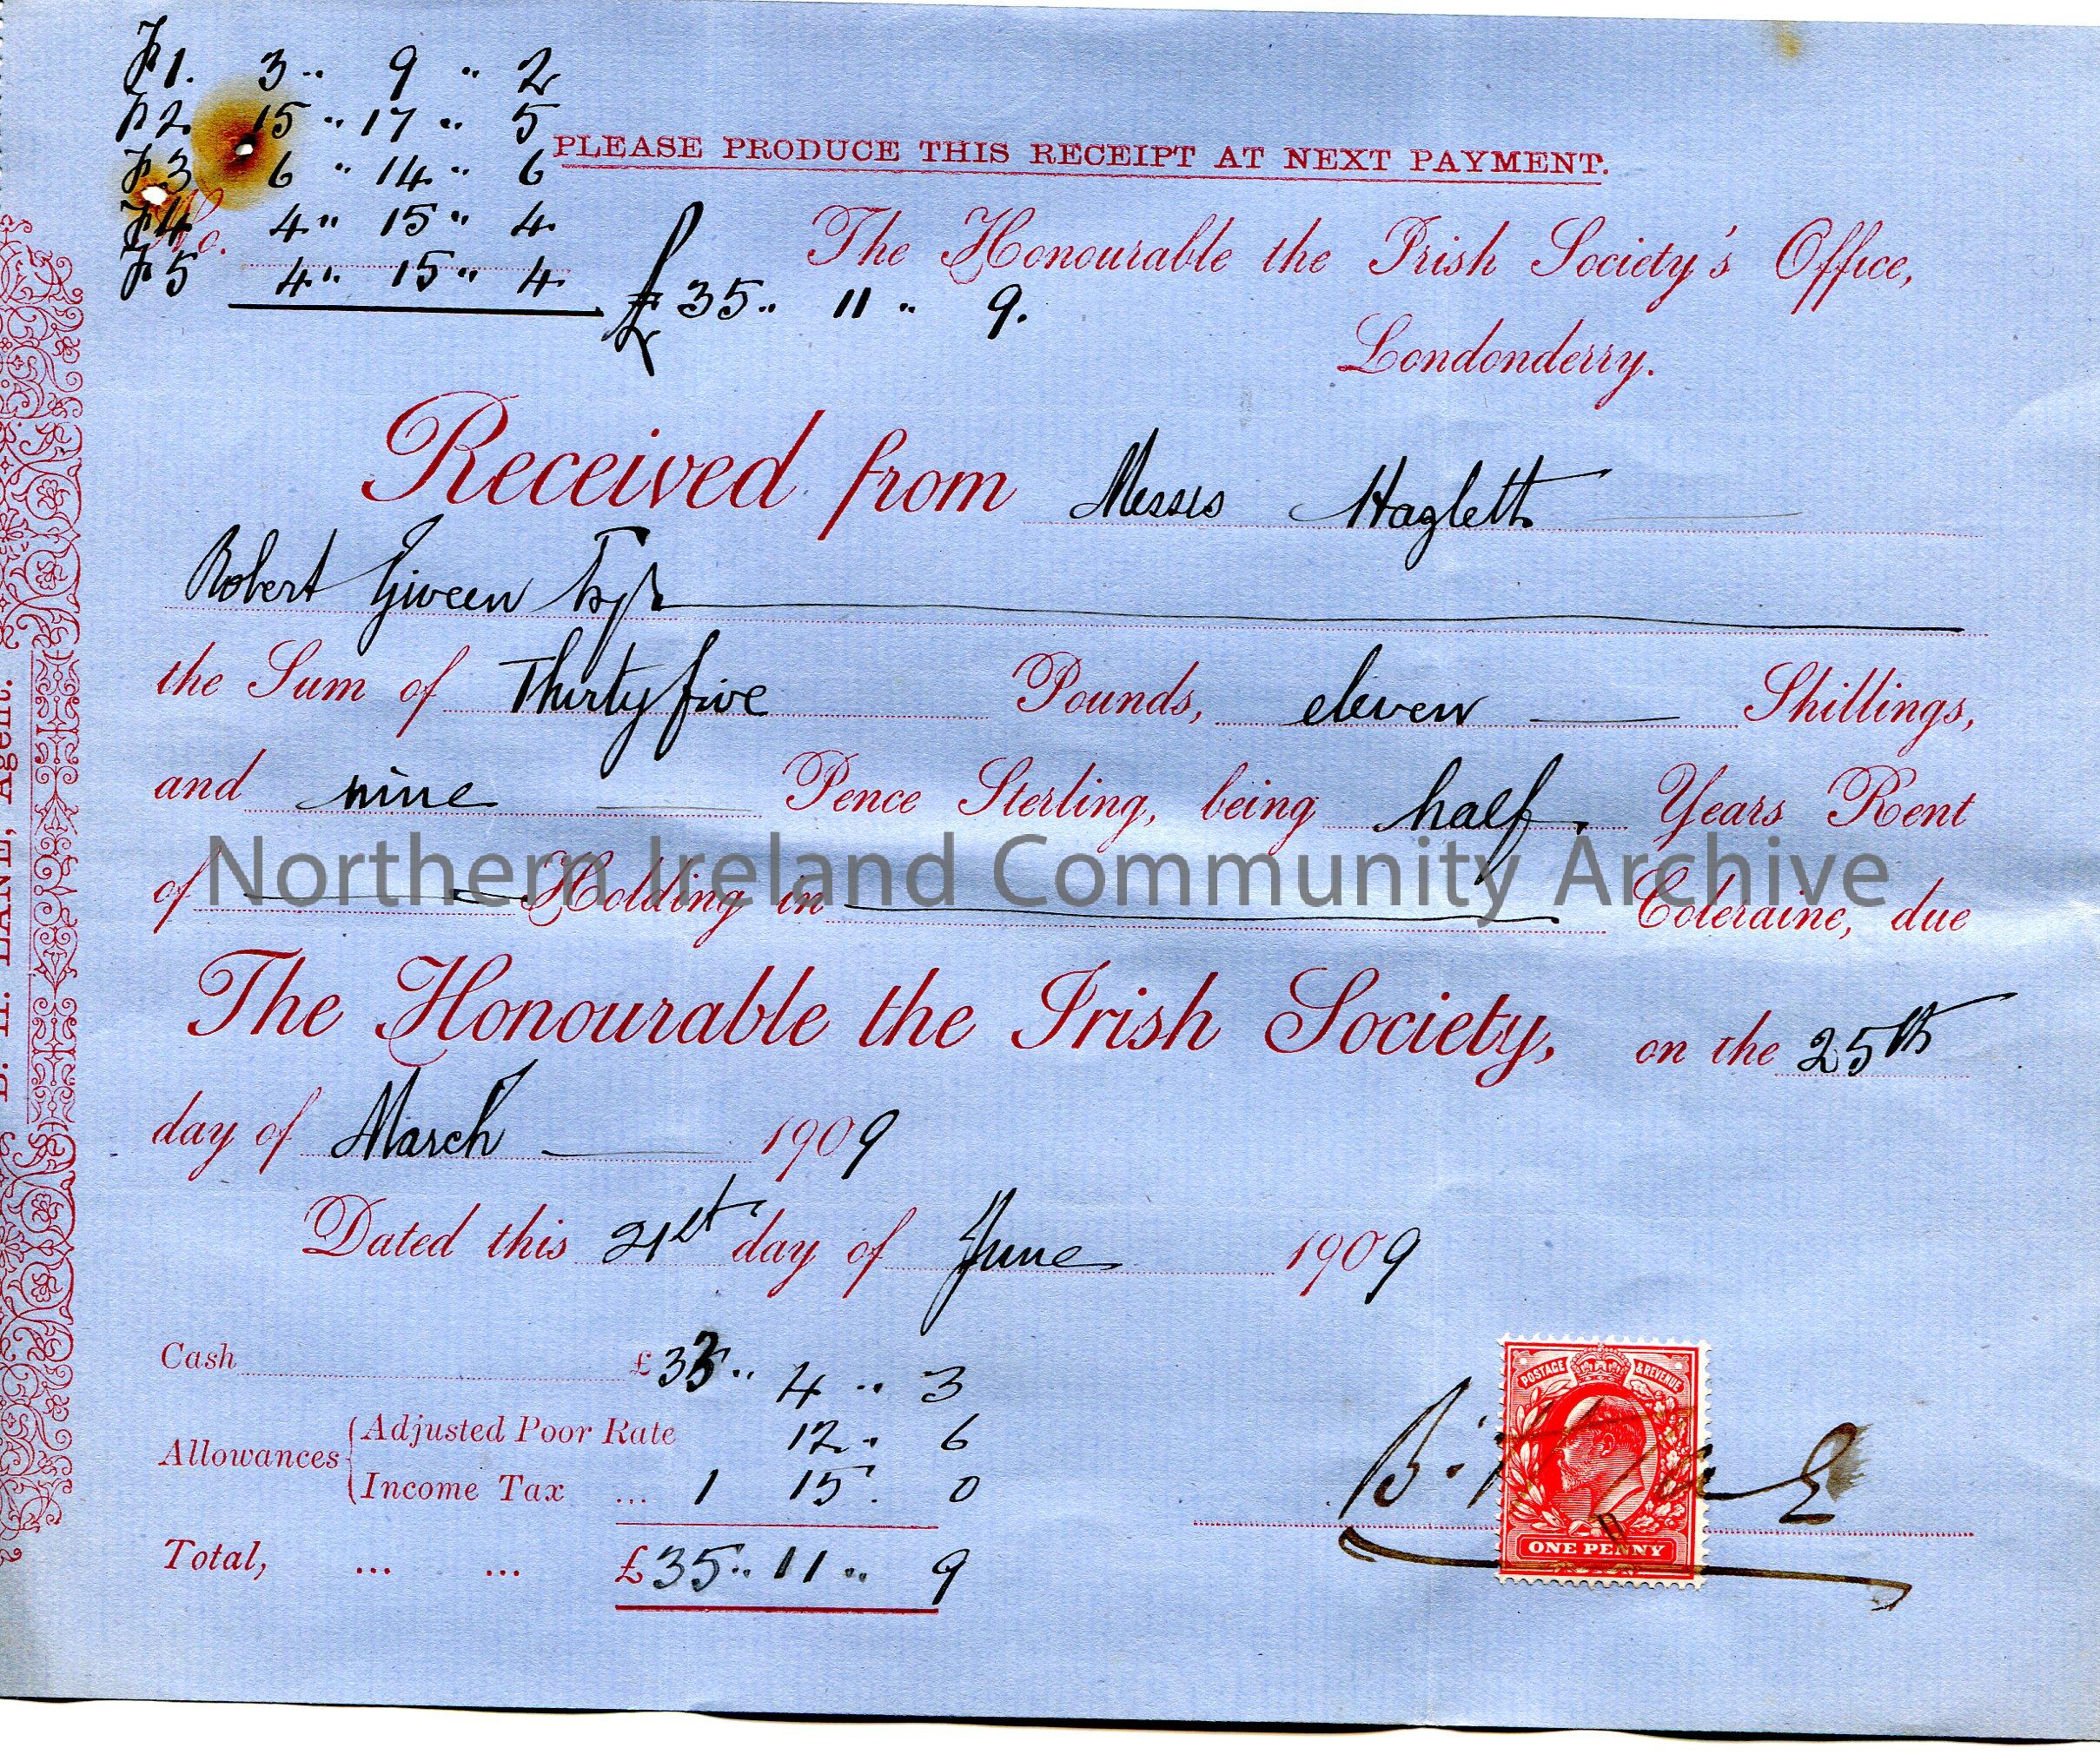 F1. 3 " 9 " 2
F2. 15 " 17 " 5
F3 6 " 14 " 6
PLEASE PRODUCE THIS RECEIPT AT NEXT PAYMENT.
No. F4 4 " 15 " 4
F5 4 " 15 " 4
£ 35 " 11 " 9.
The Honourable the Irish Society's Office,
Londonderry.
Received from Messrs Hazlett
Robert Given
the Sum of Thirty five Pounds, eleven Shillings,
and nine Pence Sterling, being half Years Rent
of Holding in Coleraine, due
Northern Ireland Community Archive
The Honourable the Irish Society, on the 25th
day of March 1909
Dated this 21st day of June 1909
Cash £33 " 4 " 3
Allowances Adjusted Poor Rate 12 " 6
Income Tax ... 1 15 . 0
Total, ... ... £35 " 11 " 9
POSTAGE & REVENUE
ONE PENNY
LANE, Agent.